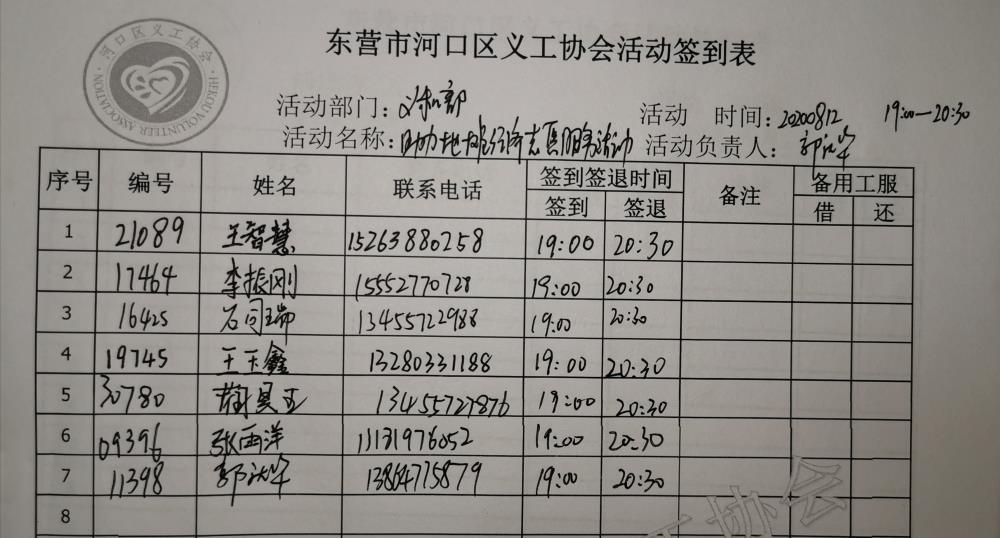 河口区义工协会
HEKOU VOLUNTEER ASSOCIATION
东营市河口区义工协会活动签到表
活动部门：义和部 活动 时间：20200812 19:00—20:30
活动名称：助力地摊经济志愿服务活动 活动负责人：
序号 编号 姓名 联系电话 签到签退时间 备注 备用工服
签到 签退 借 还
1 21089 王智慧 15263880258 19:00 20:30
2 17464 李振刚 15552770728 19:00 20:30
3 16425 石同瑞 13455722988 19:00 20:30
4 19745 王玉鑫 13280331188 19:00 20:30
5 30780 13455727876 19:00 20:30
6 09396 张西洋 19:00 20:30
7 11398 13864775879 19:00 20:30
8
工协会